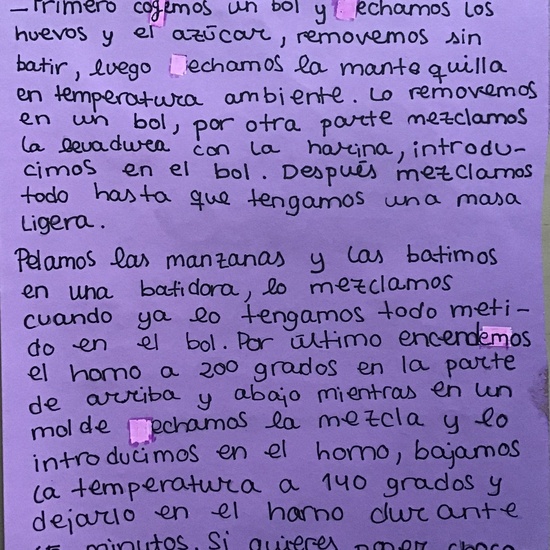 - Primero cogemos un bol y echamos los
huevos y el azúcar, removemos sin
batir, luego echamos la mantequilla
en temperatura ambiente. Lo removemos
en un bol, por otra parte mezclamos
la levadura con la harina, introdu-
cimos en el bol. Después mezclamos
todo hasta que tengamos una masa
ligera.
Pelamos las manzanas y las batimos
en una batidora, lo mezclamos
cuando ya lo tengamos todo meti-
do en el bol. Por último encendemos
el horno a 200 grados en la parte
de arriba y abajo mientras en un
molde echamos la mezcla y lo
introducimos en el horno, bajamos
la temperatura a 140 grados y
dejarlo en el horno durante
minutos. Si quieres poner